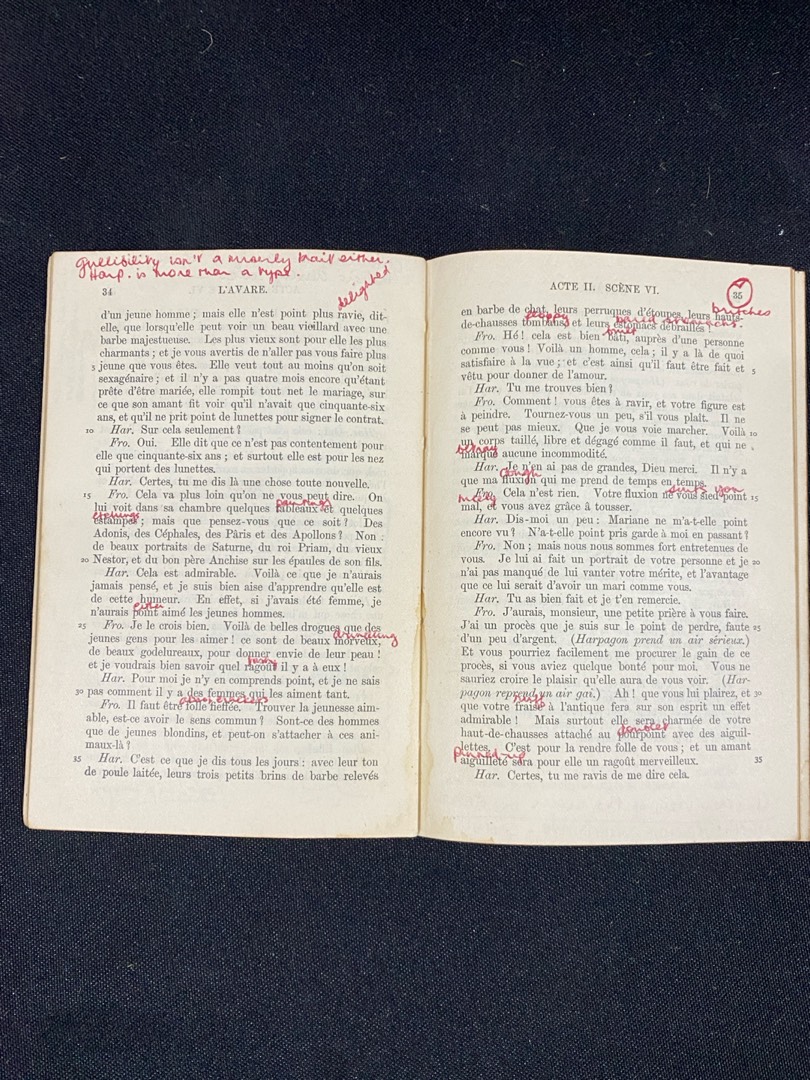 gullibility isn't a miserly trait either.
Harp. is more than a type.
34 L'AVARE.
delighted
d'un jeune homme ; mais elle n'est point plus ravie, dit-
elle, que lorsqu'elle peut voir un beau vieillard avec une
barbe majestueuse. Les plus vieux sont pour elle les plus
charmants ; et je vous avertis de n'aller pas vous faire plus
5 jeune que vous êtes. Elle veut tout au moins qu'on soit
sexagénaire ; et il n'y a pas quatre mois encore qu'étant
prête d'être mariée, elle rompit tout net le mariage, sur
ce que son amant fit voir qu'il n'avait que cinquante-six
ans, et qu'il ne prit point de lunettes pour signer le contrat.
10 Har. Sur cela seulement ?
Fro. Oui. Elle dit que ce n'est pas contentement pour
elle que cinquante-six ans ; et surtout elle est pour les nez
qui portent des lunettes.
Har. Certes, tu me dis là une chose toute nouvelle.
15 Fro. Cela va plus loin qu'on ne vous peut dire. On
paintings
lui voit dans sa chambre quelques tableaux et quelques
etchings
estampes ; mais que pensez-vous que ce soit ? Des
Adonis, des Céphales, des Pâris et des Apollons ? Non :
de beaux portraits de Saturne, du roi Priam, du vieux
20 Nestor, et du bon père Anchise sur les épaules de son fils.
Har. Cela est admirable. Voilà ce que je n'aurais
jamais pensé, et je suis bien aise d'apprendre qu'elle est
de cette humeur. En effet, si j'avais été femme, je
either
n'aurais point aimé les jeunes hommes.
25 Fro. Je le crois bien. Voilà de belles drogues que des
jeunes gens pour les aimer ! ce sont de beaux morveux,
de beaux godelureaux, pour donner envie de leur peau !
et je voudrais bien savoir quel ragoût il y a à eux !
Har. Pour moi je n'y en comprends point, et je ne sais
30 pas comment il y a des femmes qui les aiment tant.
Fro. Il faut être folle fieffée. Trouver la jeunesse aim-
able, est-ce avoir le sens commun ? Sont-ce des hommes
que de jeunes blondins, et peut-on s'attacher à ces ani-
maux-là ?
35 Har. C'est ce que je dis tous les jours : avec leur ton
de poule laitée, leurs trois petits brins de barbe relevés
ACTE II. SCÈNE VI. 35
britches
en barbe de chat, leurs perruques d'étoupes, leurs hauts-
floppy bared stomachs.
de-chausses tombants et leurs estomacs débraillés !
Fro. Hé ! cela est bien bâti, auprès d'une personne
comme vous ! Voilà un homme, cela ; il y a là de quoi
satisfaire à la vue ; et c'est ainsi qu'il faut être fait et 5
vêtu pour donner de l'amour.
Har. Tu me trouves bien ?
Fro. Comment ! vous êtes à ravir, et votre figure est
à peindre. Tournez-vous un peu, s'il vous plaît. Il ne
se peut pas mieux. Que je vous voie marcher. Voilà 10
un corps taillé, libre et dégagé comme il faut, et qui ne
betray
marque aucune incommodité.
Har. Je n'en ai pas de grandes, Dieu merci. Il n'y a
cough
que ma fluxion qui me prend de temps en temps.
suits you
Fro. Cela n'est rien. Votre fluxion ne vous sied point 15
nicely
mal, et vous avez grâce à tousser.
Har. Dis-moi un peu : Mariane ne m'a-t-elle point
encore vu ? N'a-t-elle point pris garde à moi en passant ?
Fro. Non ; mais nous nous sommes fort entretenues de
vous. Je lui ai fait un portrait de votre personne et je 20
n'ai pas manqué de lui vanter votre mérite, et l'avantage
que ce lui serait d'avoir un mari comme vous.
Har. Tu as bien fait et je t'en remercie.
Fro. J'aurais, monsieur, une petite prière à vous faire.
J'ai un procès que je suis sur le point de perdre, faute 25
d'un peu d'argent. (Harpagon prend un air sérieux.)
Et vous pourriez facilement me procurer le gain de ce
procès, si vous aviez quelque bonté pour moi. Vous ne
sauriez croire le plaisir qu'elle aura de vous voir. (Har-
pagon reprend un air gai.) Ah ! que vous lui plairez, et 30
ruffs
que votre fraise à l'antique fera sur son esprit un effet
admirable ! Mais surtout elle sera charmée de votre
doublet
haut-de-chausses attaché au pourpoint avec des aiguil-
lettes. C'est pour la rendre folle de vous ; et un amant
pinned-up
aiguilleté sera pour elle un ragoût merveilleux. 35
Har. Certes, tu me ravis de me dire cela.